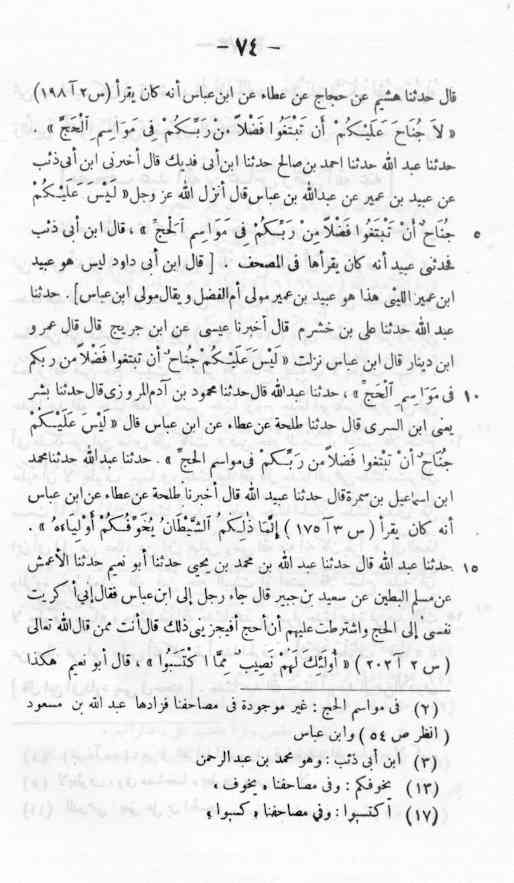 — ٧٤ —
قال حدثنا هشيم عن حجاج عن عطاء عن ابن عباس أنه كان يقرأ (س ٢ آ ١٩٨)
« لَا جُنَاحَ عَلَيْكُمْ أَن تَبْتَغُوا فَضْلاً مِنْ رَبِّكُمْ فِى مَوَاسِمِ الْحَجِّ » .
حدثنا عبد الله حدثنا احمد بن صالح حدثنا ابن أبى فديك قال أخبرنى ابن أبى ذئب
عن عبيد بن عمير عن عبدالله بن عباس قال أنزل الله عز وجل « لَيْسَ عَلَيْكُمْ
٥ جُنَاحٌ أَنْ تَبْتَغُوا فَضْلاً مِنْ رَبِّكُمْ فِى مَوَاسِمِ الْحَجِّ » ، قال ابن أبى ذئب
فحدثنى عبيد أنه كان يقرأها فى المصحف . [ قال ابن أبى داود ليس هو عبيد
ابن عمير الليثى هذا هو عبيد بن عمير مولى أم الفضل ويقال مولى ابن عباس ] . حدثنا
عبد الله حدثنا على بن خشرم قال أخبرنا عيسى عن ابن جريج قال قال عمر و
ابن دينار قال ابن عباس نزلت « لَيْسَ عَلَيْكُمْ جُنَاحٌ أَن تبتغوا فَضْلاً من ربكم
١٠ فى مَوَاسِمِ الْحَجِّ » ، حدثنا عبدالله قال حدثنا محمود بن آدم المروزى قال حدثنا بشر
يعنى ابن السرى قال حدثنا طلحة عن عطاء عن ابن عباس قال « لَيْسَ عَلَيْكُمْ
جُنَاحٌ أَنْ تَبْتغوا فَضلاً مِنْ رَبِّكُمْ فى مواسم الحجِّ » . حدثنا عبدالله حدثنا محمد
ابن اسماعيل بن سمرة قال حدثنا عبيد الله قال أخبرنا طلحة عن عطاء عن ابن عباس
أنه كان يقرأ ( س ٣ آ ١٧٥ ) إِنَّمَا ذٰلِكُمُ الشَّيْطَانُ يُخَوِّفُكُمْ أَوْلِيَاءَهُ » .
١٥ حدثنا عبد الله قال حدثنا عبد الله بن محمد بن يحيى حدثنا أبو نعيم حدثنا الأعمش
عن مسلم البطين عن سعيد بن جبير قال جاء رجل إلى ابن عباس فقال إنى أكريت
نفسى إلى الحج واشترطت عليهم أن أحج أفيجزينى ذلك قال أنت ممن قال الله تعالى
( س ٢ آ ٢٠٢ ) « أُولَئِكَ لَهُمْ نَصِيبٌ مِمَّا اكْتَسَبُوا » ، قال أبو نعيم هكذا
(٢) فى مواسم الحج : غير موجودة فى مصاحفنا فزادها عبد الله بن مسعود
( انظر ص ٥٤ ) وابن عباس
(٣) ابن أبى ذئب : وهو محمد بن عبد الرحمن
(١٣) يخوفكم : وفى مصاحفنا « يخوف »
(١٧) اكتسبوا : وفى مصاحفنا « كسبوا »